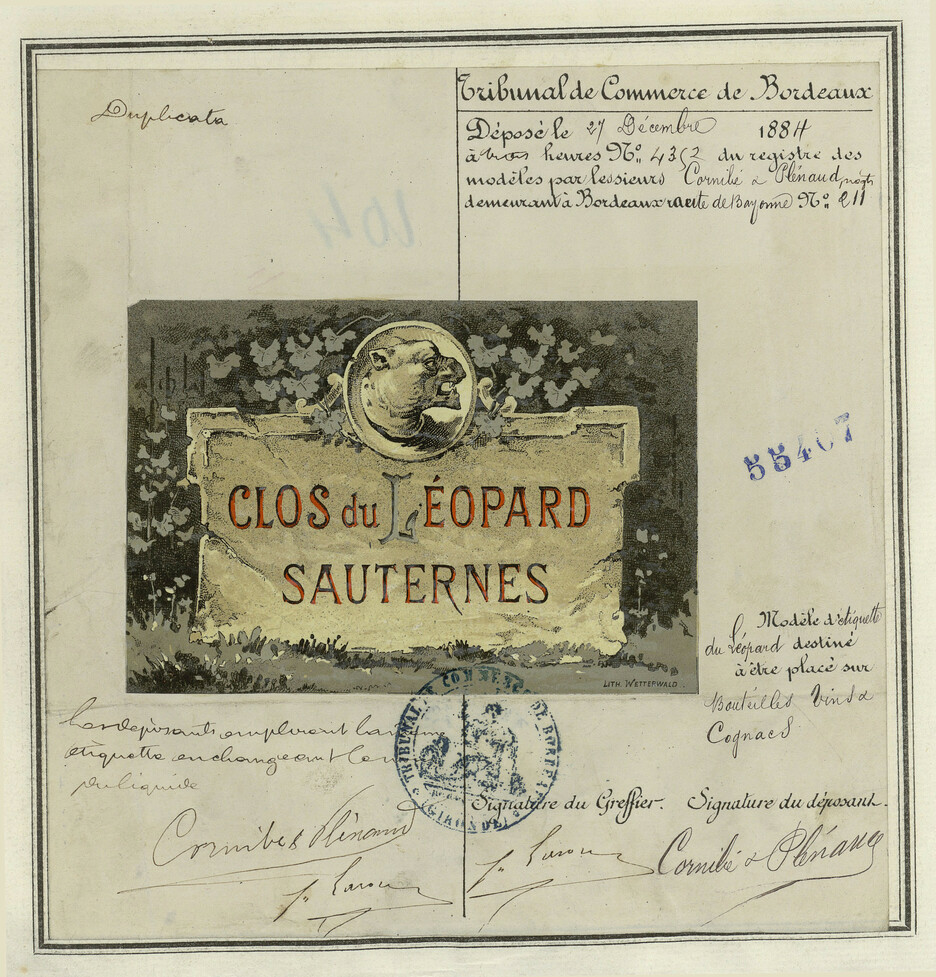 Duplicata
Tribunal de Commerce de Bordeaux
Déposé le 27 Décembre 1884
à trois heures No. du registre des
modèles par les sieurs Cornibé & Plénaud, négts
demeurant à Bordeaux route de Bayonne No. 211
104
CLOS du LÉOPARD
SAUTERNES
LITH. WETTERWALD
55407
Modèle d'étiquette
du Léopard destiné
à être placé sur
Bouteilles Vins &
Cognacs
Les déposants emploieront la
étiquette en changeant le
du liquide
TRIBUNAL DE COMMERCE DE BORDEAUX
(GIRONDE)
Signature du Greffier. Signature du déposant.
Cornibé & Plénaud
Cornibé & Plénaud